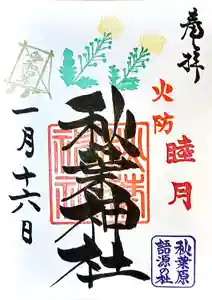 奉拝
火防
睦月
秋葉神社
一月十六日
秋葉原
語源の社